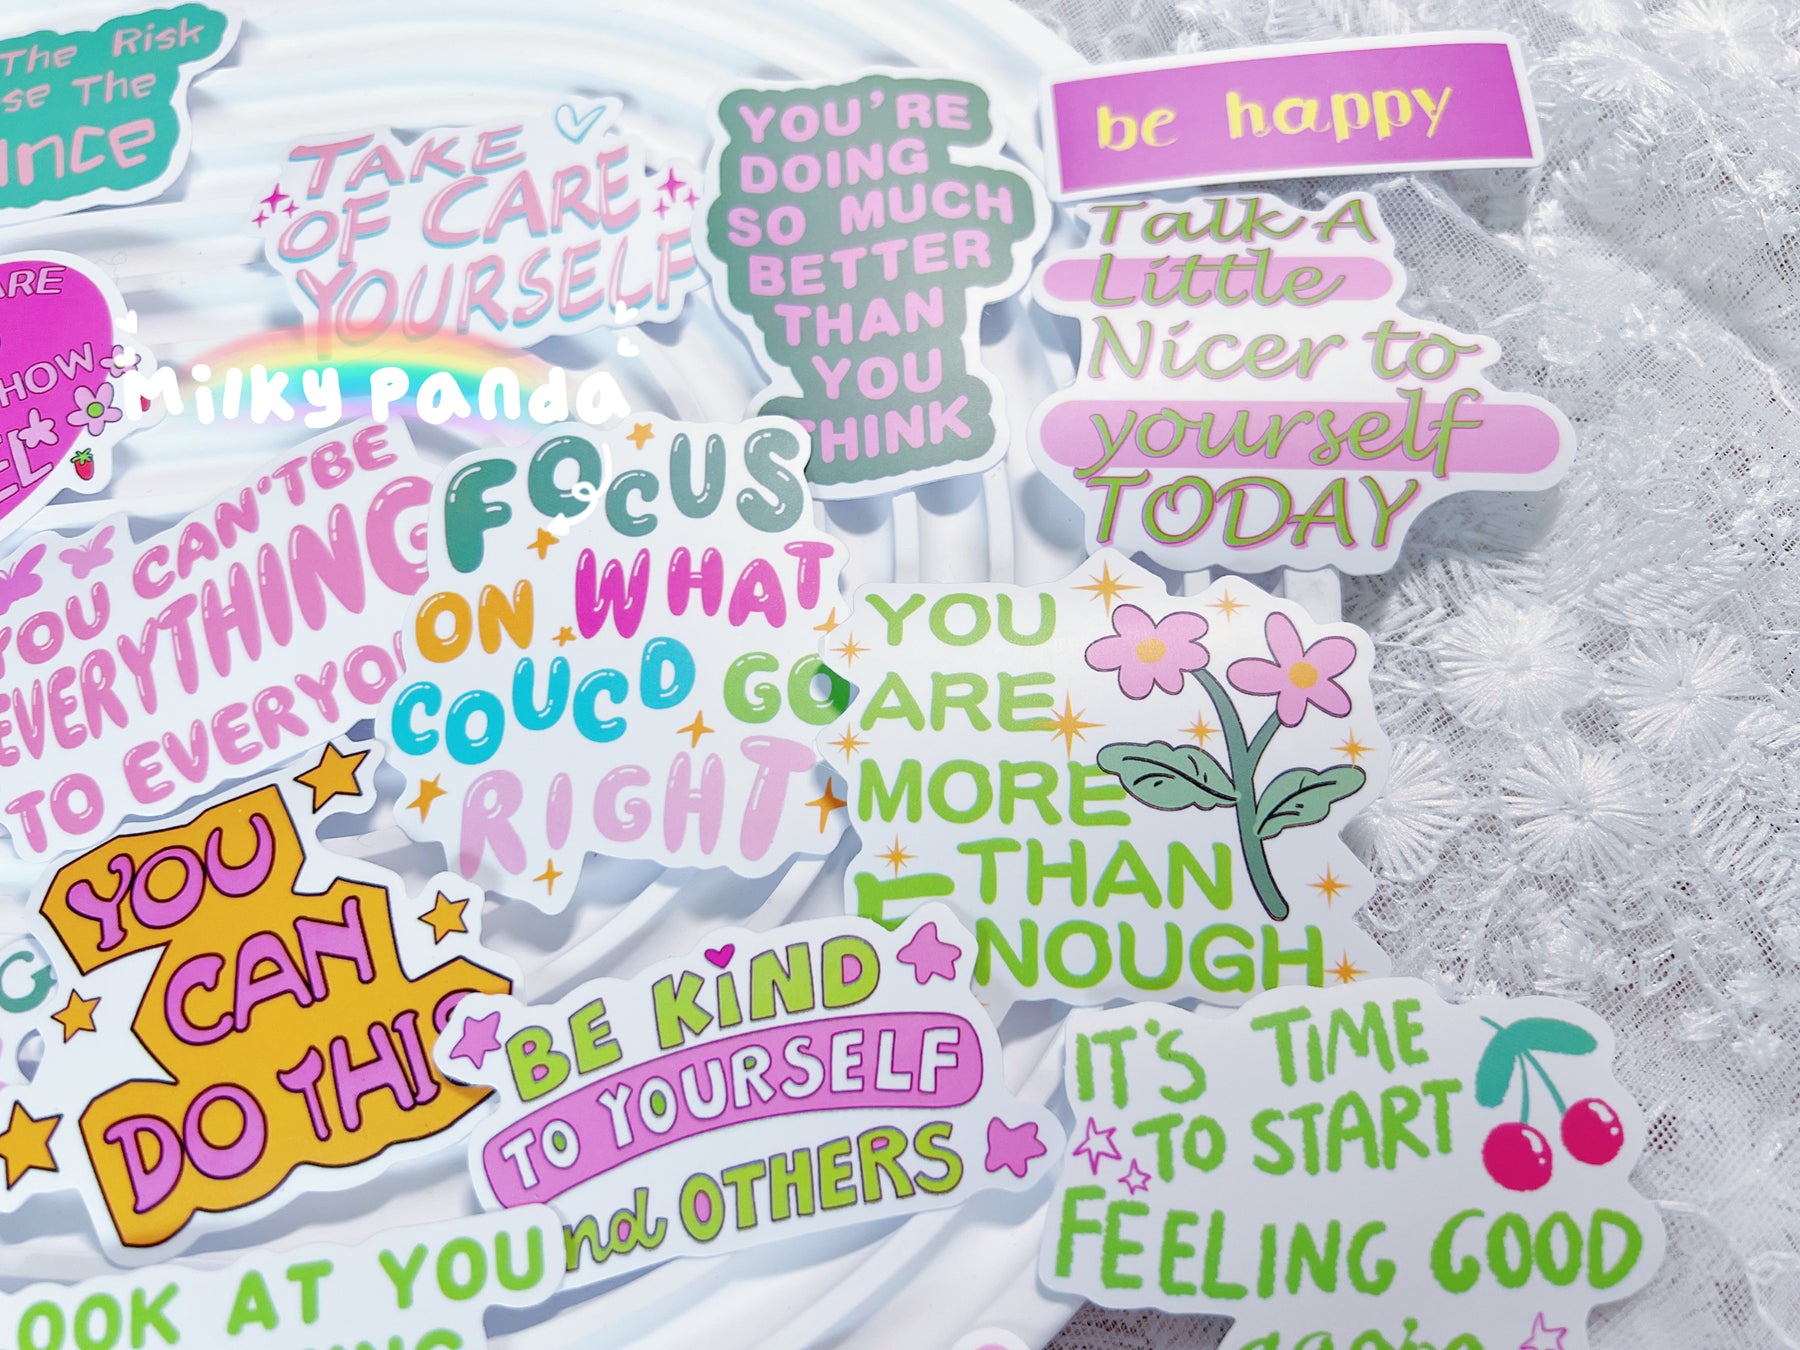 The Risk
se The
ance
TAKE
OF CARE
YOURSELF
YOU'RE
DOING
SO MUCH
BETTER
THAN
YOU
THINK
be happy
Talk A
Little
Nicer to
yourself
TODAY
ARE
HOW
EL
milky panda
YOU CAN'TBE
EVERYTHING
TO EVERYO
FOCUS
ON WHAT
COUCD GO
RIGHT
YOU
ARE
MORE
THAN
ENOUGH
YOU
CAN
DO THIS
BE KIND
TO YOURSELF
and OTHERS
IT'S TIME
TO START
FEELING GOOD
again
OOK AT YOU
ING